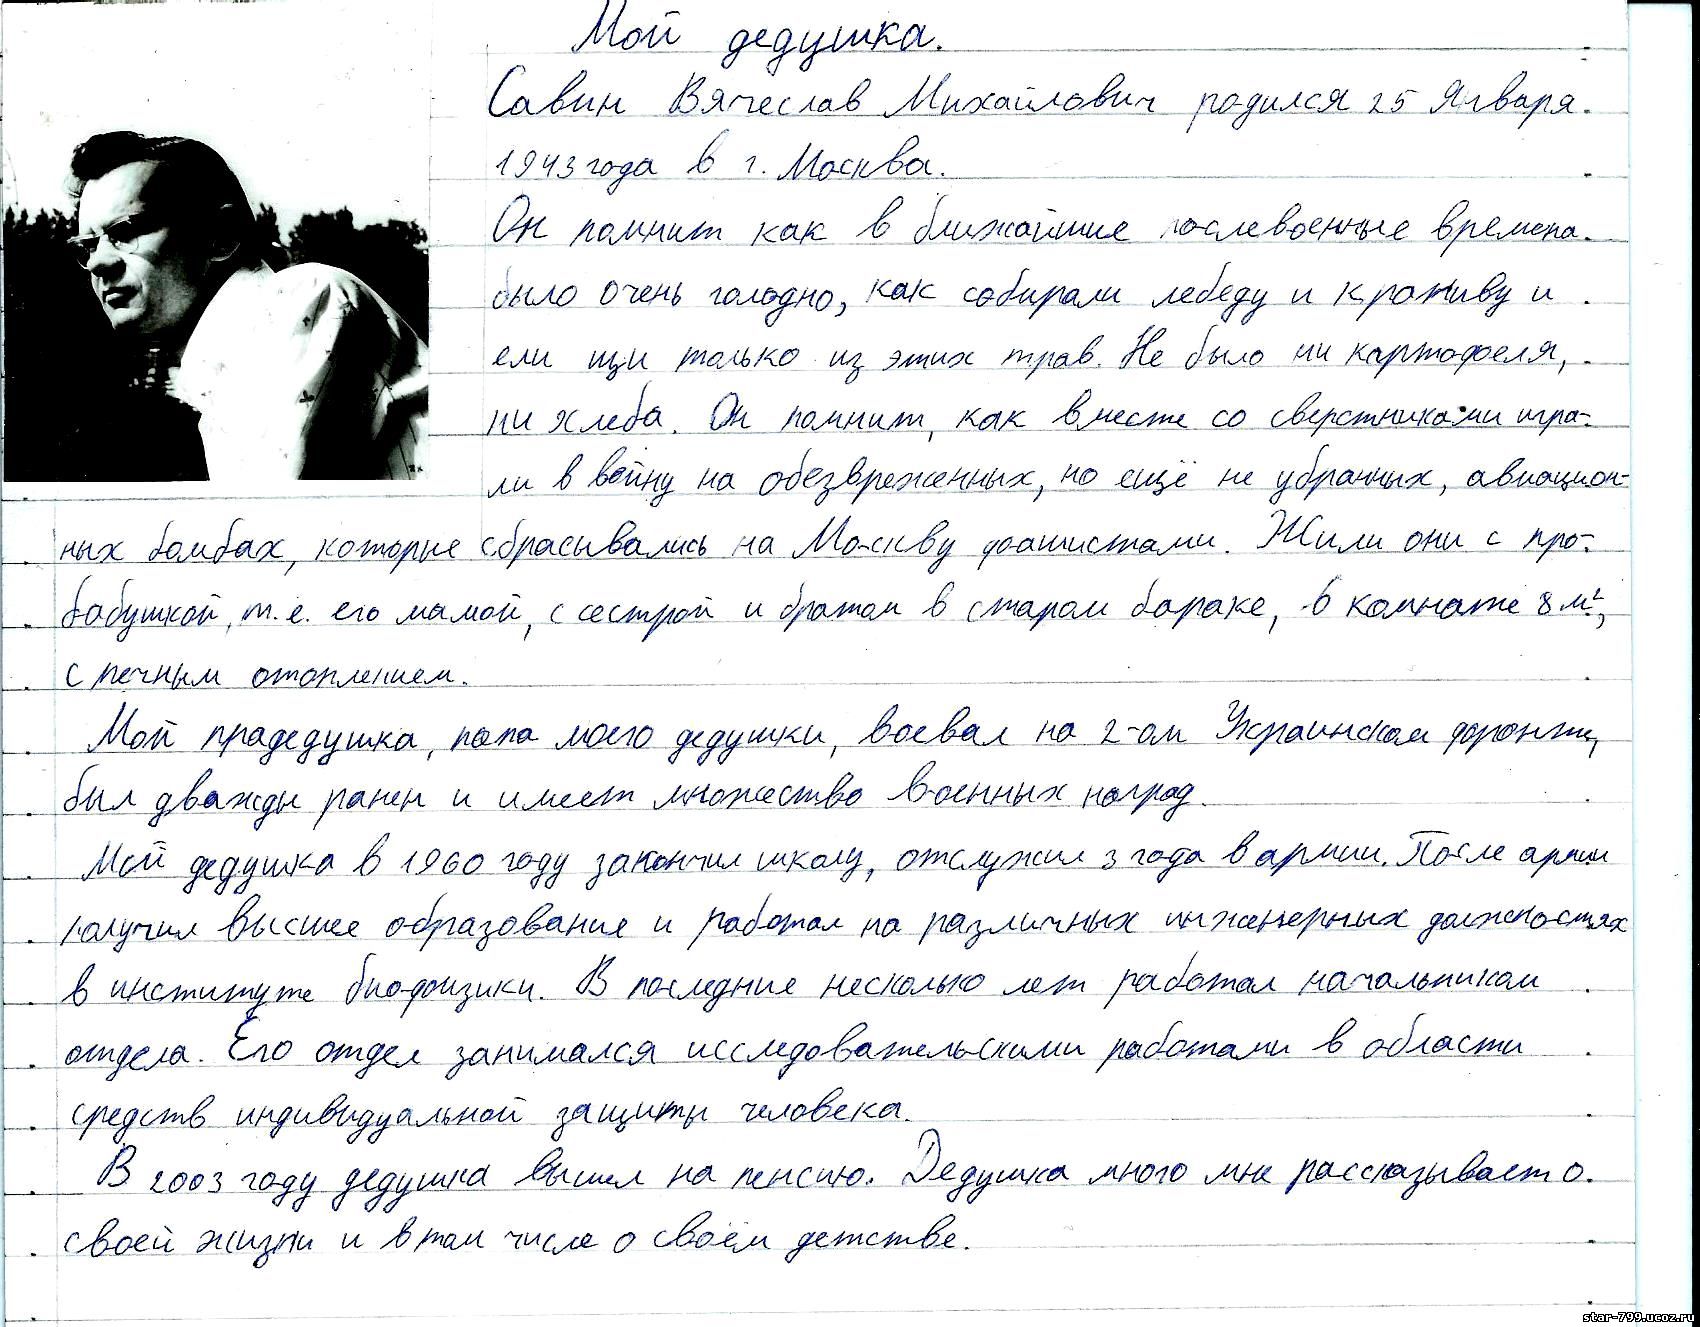 Мой дедушка.
Савин Вячеслав Михайлович родился 25 Января
1943 года в г. Москва.
Он помнит как в ближайшие послевоенные времена
было очень голодно, как собирали лебеду и крапиву и
ели щи только из этих трав. Не было ни картофеля,
ни хлеба. Он помнит, как вместе со сверстниками игра-
ли в войну на обезвреженных, но ещё не убранных, авиацион-
ных бомбах, которые сбрасывались на Москву фашистами. Жили они с пра-
бабушкой, т.е. его мамой, с сестрой и братом в старом бараке, в комнате 8 м²,
с печным отоплением.
Мой прадедушка, папа моего дедушки, воевал на 2-ом Украинском фронте,
был дважды ранен и имеет множество военных наград.
Мой дедушка в 1960 году закончил школу, отслужил 3 года в армии. После армии
получил высшее образование и работал на различных инженерных должностях
в институте биофизики. В последние несколько лет работал начальником
отдела. Его отдел занимался исследовательскими работами в области
средств индивидуальной защиты человека.
В 2003 году дедушка вышел на пенсию. Дедушка много мне рассказывает о
своей жизни и в том числе о своём детстве.
star-799.ucoz.ru